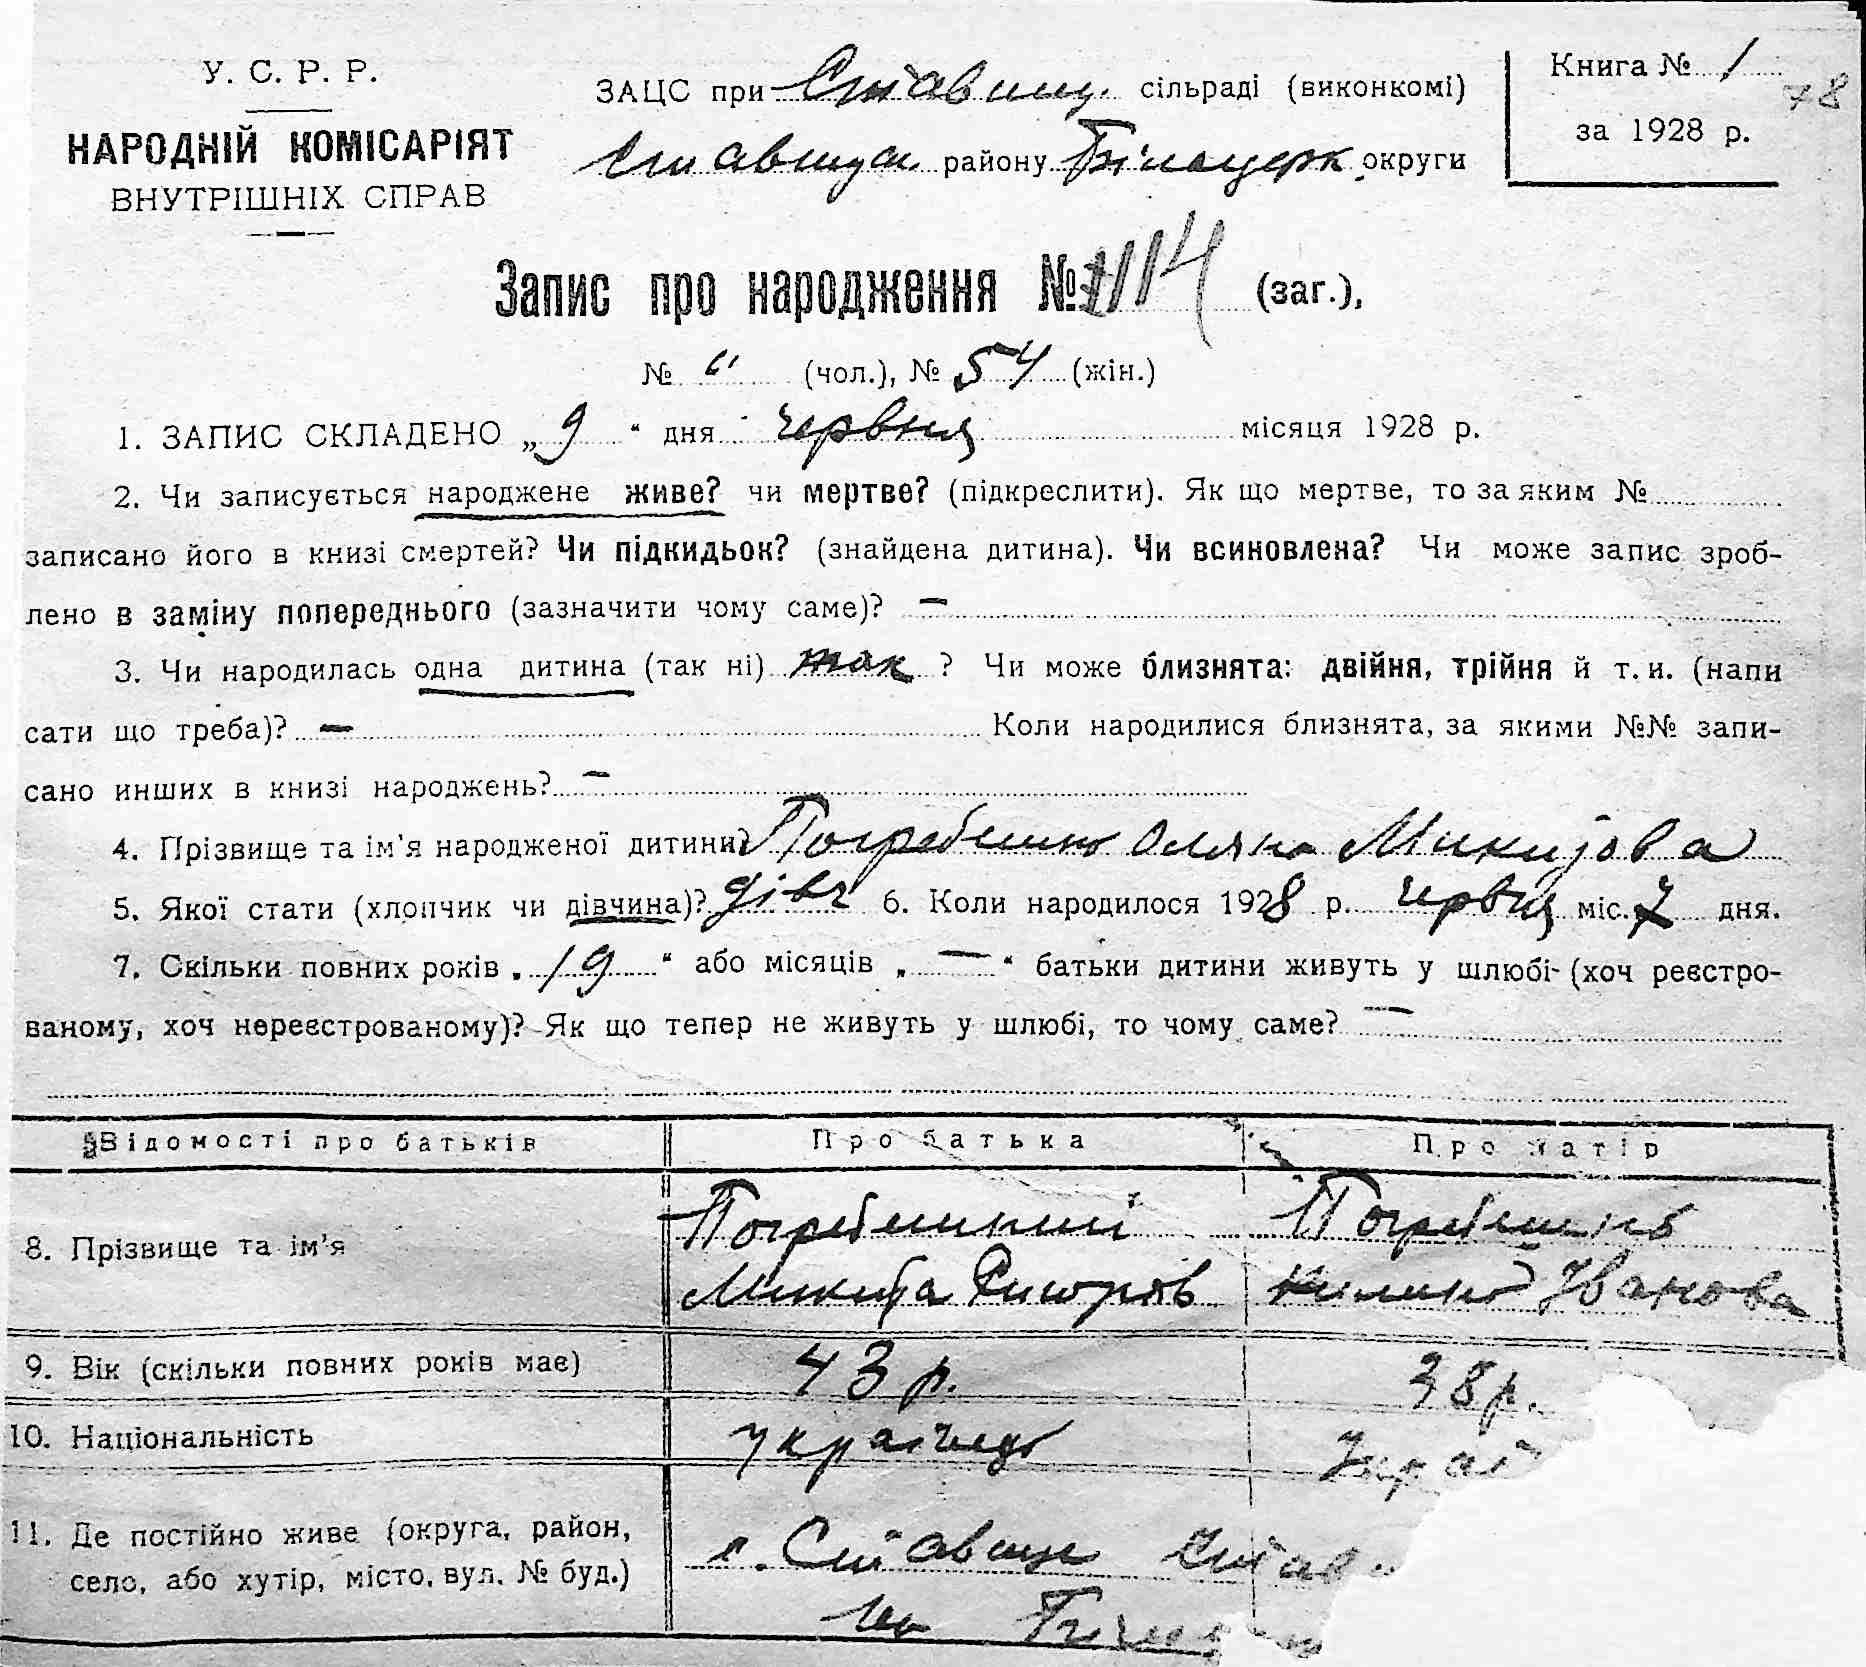 У. С. Р. Р.
НАРОДНІЙ КОМІСАРІЯТ
ВНУТРІШНІХ СПРАВ
ЗАЦС при Ставищ. сільраді (виконкомі)
району Білоцерк. округи
Книга № 1
78
за 1928 р.
Запис про народження № 114 (заг.),
№ " (чол.), № 54 (жін.)
1. ЗАПИС СКЛАДЕНО „ 9 “ дня червня місяця 1928 р.
2. Чи записується народжене живе? чи мертве? (підкреслити). Як що мертве, то за яким №
записано його в книзі смертей? Чи підкидьок? (знайдена дитина). Чи всиновлена? Чи може запис зроб-
лено в заміну попереднього (зазначити чому саме)? —
3. Чи народилась одна дитина (так ні) так ? Чи може близнята: двійня, трійня й т. и. (напи
сати що треба)? — Коли народилися близнята, за якими №№ запи-
сано инших в книзі народжень? —
4. Прізвище та ім'я народженої дитини?
5. Якої стати (хлопчик чи дівчина)? дівч 6. Коли народилося 1928 р. червня міс. 7 дня.
7. Скільки повних років „ 19 “ або місяців „ — “ батьки дитини живуть у шлюбі- (хоч реєстро-
ваному, хоч нереєстрованому)? Як що тепер не живуть у шлюбі, то чому саме? —
Відомості про батьків Про батька Про матір
8. Прізвище та ім'я
Микита Іванова
9. Вік (скільки повних років має) 43 р. 38 р.
10. Національність українець Украї
11. Де постійно живе (округа, район,
село, або хутір, місто, вул. № буд.)
с. Ставище Став